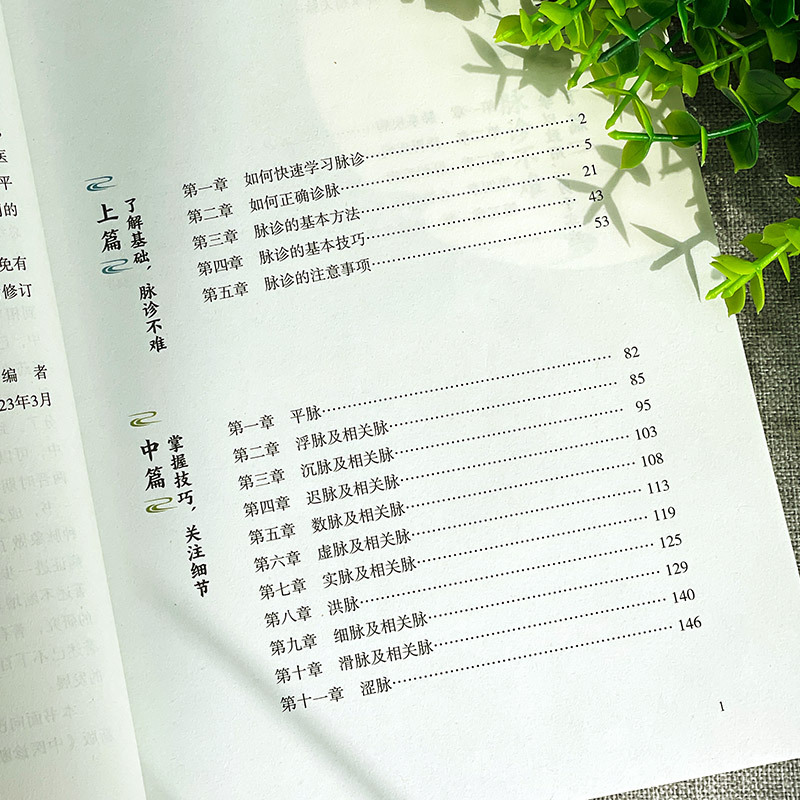 医
平
的
免有
修订
编 者
23年3月
上篇
了解基础，脉诊不难
第一章 如何快速学习脉诊……2
第二章 如何正确诊脉……5
第三章 脉诊的基本方法……21
第四章 脉诊的基本技巧……43
第五章 脉诊的注意事项……53
中篇
掌握技巧，关注细节
第一章 平脉……82
第二章 浮脉及相关脉……85
第三章 沉脉及相关脉……95
第四章 迟脉及相关脉……103
第五章 数脉及相关脉……108
第六章 虚脉及相关脉……113
第七章 实脉及相关脉……119
第八章 洪脉……125
第九章 细脉及相关脉……129
第十章 滑脉及相关脉……140
第十一章 涩脉……146
1